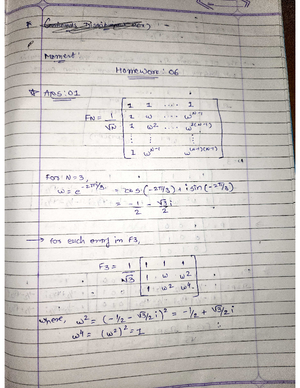 Moment:
Homework: 06
Ans: 01
FN = 1/√N [ 1 1 ... 1
1 ω ... ω^(N-1)
1 ω² ... ω^2(N-1)
⋮ ⋮ ⋮
1 ω^(N-1) ω^(N-1)(N-1) ]
For N=3,
ω = e^(-2πi/3) = cos(-2π/3) + i sin(-2π/3)
= -1/2 - √3/2 i
→ for each entry in F3,
F3 = 1/√3 [ 1 1 1
1 ω ω2
1 ω2 ω4 ]
where, ω² = (-1/2 - √3/2 i)² = -1/2 + √3/2 i
ω4 = (ω²)² = 1